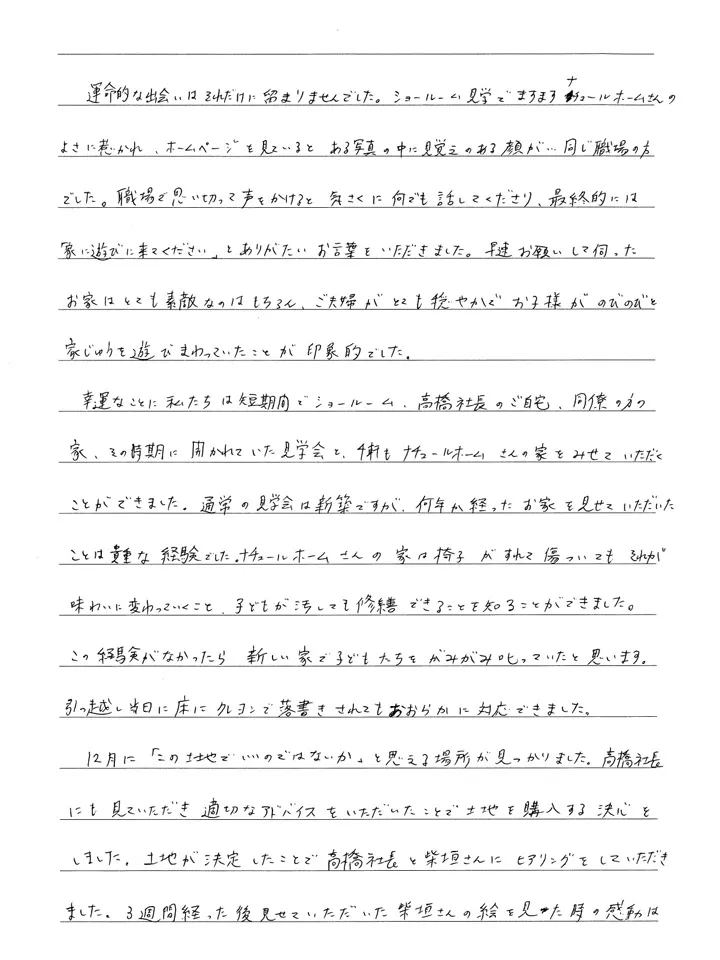 運命的な出会いはそれだけに留まりませんでした。ショールーム見学でますますナチュールホームさんの
よさに惹かれ、ホームページを見ていると ある写真の中に見覚えのある顔が…同じ職場の方
でした。職場で思い切って声をかけると 気さくに何でも話してくださり、最終的には
「家に遊びに来てください」とありがたいお言葉をいただきました。早速お願いして伺った
お家はとても素敵なのはもちろん、ご夫婦がとても穏やかで お子様がのびのびと
家じゅうを遊びまわっていたことが印象的でした。
幸運なことに私たちは短期間でショールーム、高橋社長のご自宅、同僚の方の
家、その時期に開かれていた見学会と、4軒もナチュールホームさんの家をみせていただく
ことができました。通常の見学会は新築ですが、何年か経ったお家を見せていただいた
ことは貴重な経験でした。ナチュールホームさんの家は椅子がすれて傷ついても それが
味わいに変わっていくこと、子どもが汚しても修繕できることを知ることができました。
この経験がなかったら 新しい家で子どもたちをがみがみ叱っていたと思います。
引っ越し当日に床にクレヨンで落書きされてもおおらかに対応できました。
12月に「この土地でいいのではないか」と思える場所が見つかりました。高橋社長
にも見ていただき 適切なアドバイスをいただいたことで土地を購入する決心を
しました。土地が決定したことで高橋社長と柴垣さんにヒアリングをしていただき
ました。3週間経った後見せていただいた柴垣さんの絵を見た時の感動は